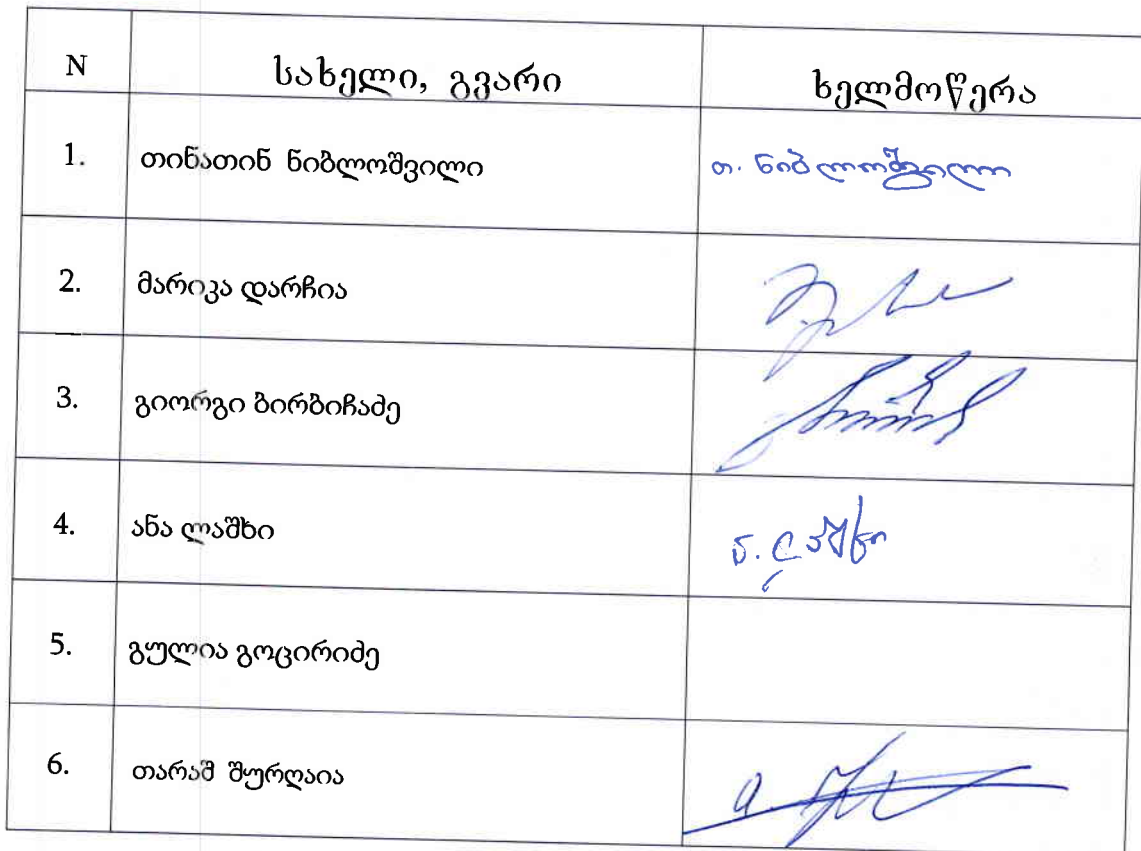 N სახელი, გვარი ხელმოწერა
1. თინათინ ნიბლოშვილი თ. ნიბლოშვილი
2. მარიკა დარჩია
3. გიორგი ბირბიჩაძე
4. ანა ლაშხი ა. ლაშხი
5. გულია გოცირიძე
6. თარაშ შურღაია